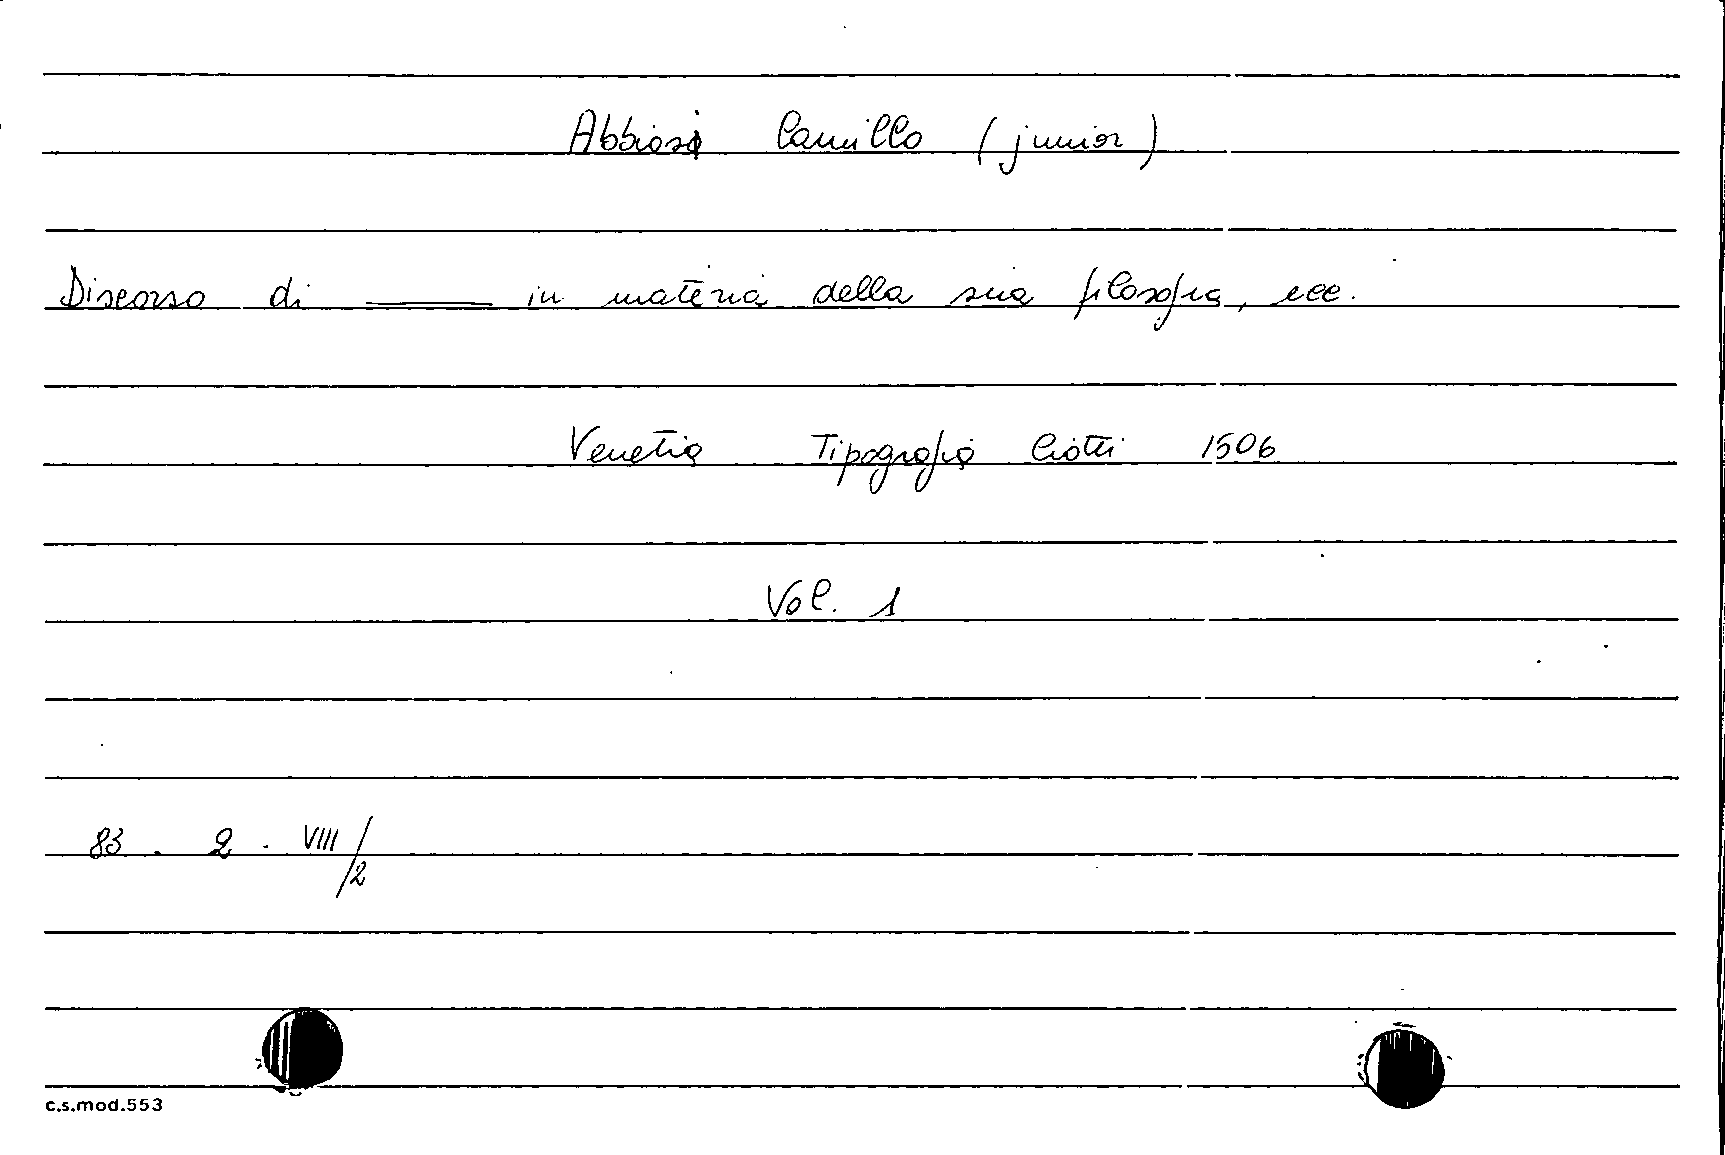 Abbiosi Camillo (junior)
Discorso di ——— in materia della sua filosofia, ecc.
Venetia Tipografia Ciotti 1506
Vol. 1
83 . 2 . VIII/2
c.s.mod.553